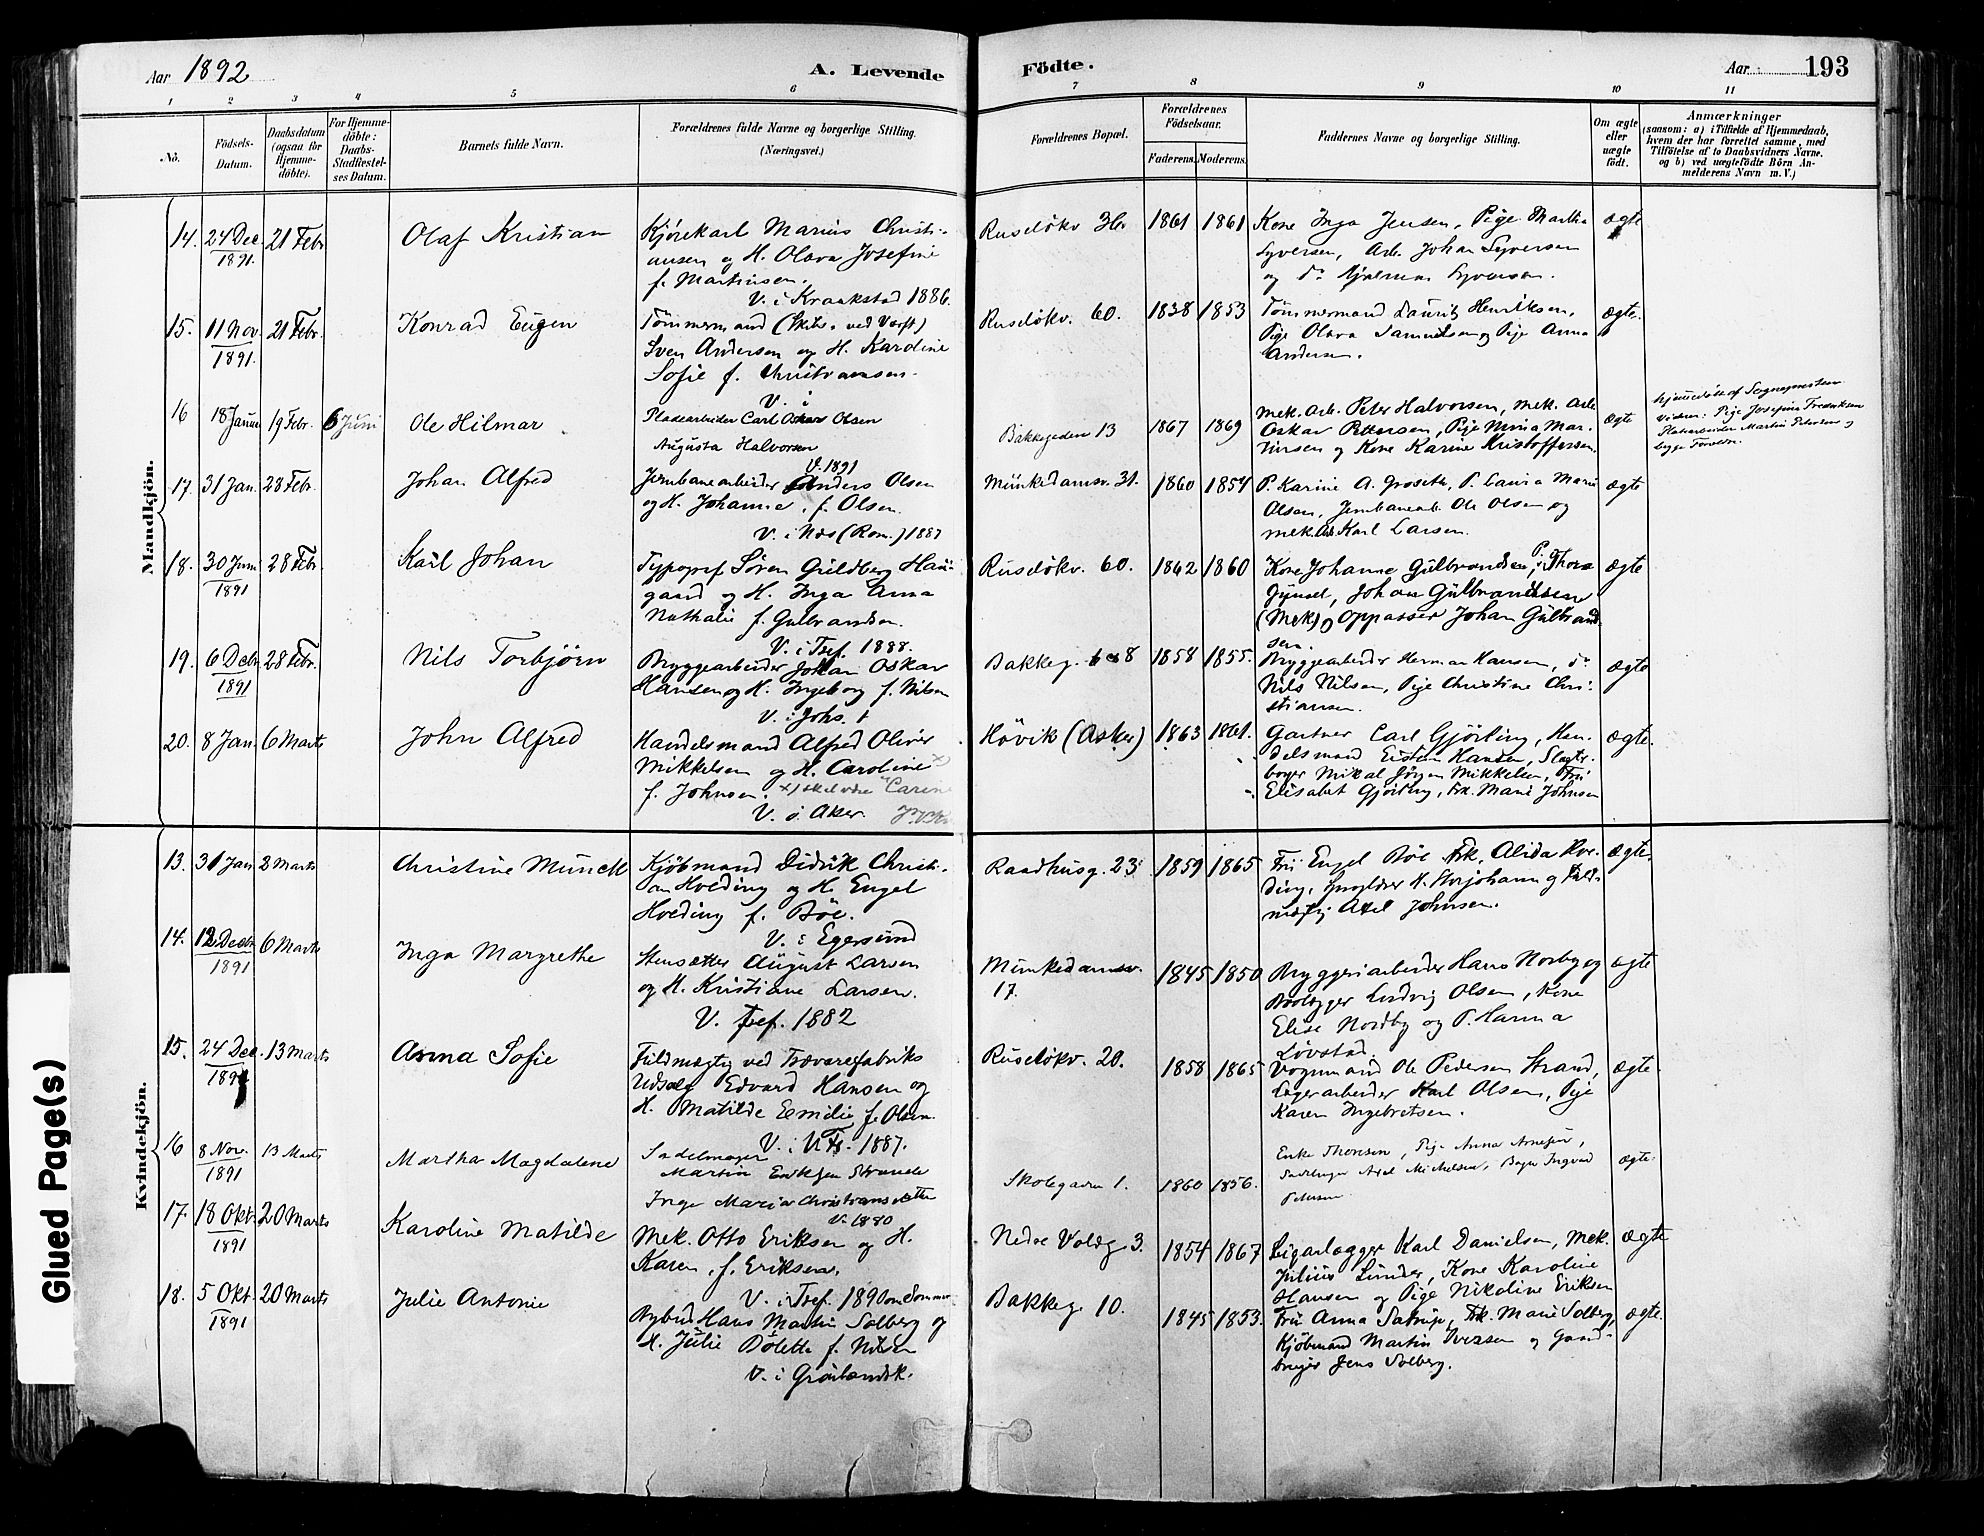 Aar 1892
A. Levende
Födte.
Aar
193
1 2 3 4 5 6 7 8 9 10 11
No.
Födsels-
Datum.
Daabsdatum
(ogsaa for
Hjemme-
döbte).
For Hjemme-
döbte:
Daabs-
Stadfæstel-
ses Datum.
Barnets fulde Navn.
Forældrenes fulde Navne og borgerlige Stilling.
(Næringsvei.)
Forældrenes Bopæl.
Forældrenes
Födselsaar.
Faderens. Moderens.
Faddernes Navne og borgerlige Stilling.
Om ægte
eller
uægte
födt.
Anmærkninger
(saasom: a) i Tilfælde af Hjemmedaab,
hvem der har forrettet samme, med
Tilföielse af to Daabsvidners Navne,
og b) ved uægtefödte Börn An-
melderens Navn m. V.)
Mandkjön.
14. 24 Dec 1891. 21 Febr
Olaf Kristian
Kjörekarl Marius Christi-
ansen og H. Olava Josefine
f. Martinsen.
V. i Kraakstad 1886.
Ruselökv 1861 1861
Kone Inga Jensen, Pige Martha
Syversen, Arb. Johan Syversen
og do Hjalmar Syversen.
ægte
15. 11 Nov. 1891. 21 Febr.
Konrad Eugen
Tömmermand (Skibs. ved Værft)
Sven Andersen og H. Karoline
Sofie f. Christiansen.
V. i
Ruselökv. 60. 1838 1853
Tömmermand Laurits Henriksen,
Pige Olava Samuelsen og Pige Anna
Andersen.
ægte.
16 18 Januar 19 Febr. 6 Juni
Ole Hilmar
Pladearbeider Carl Oskar Olsen
Augusta Halvorsen
V. 1891
Bakkegaden 13 1867 1869
Mek. Arb. Peter Halvorsen, Mek. Arb.
Oskar Pettersen, Pige Minia Mar-
tinsen og Kone Karine Kristoffersen
ægte
Hjemmedöbt af Sognepresten
Vidner: Pige Josefine Fredriksen
Martin Petersen og
begge Forældre.
17. 31 Jan. 28 Febr.
Johan Alfred
Jernbanearbeider Anders Olsen
og H. Johanne, f. Olsen.
V. i Næs (Rom.) 1887
Munkedamsv. 31. 1860 1854
P. Karine A. Groseth, P. Laura Marie
Olsen, Jernbanearb. Ole Olsen og
mek. Arb Karl Larsen.
ægte
18. 30 Juni 1891 28 Febr.
Karl Johan
Typograf Sören Guldberg Haa-
gaard og H. Inga Anna
Nathalie f. Gulbrandsen.
V. i Tref. 1888.
Ruselökv. 60. 1862 1860
Kone Johanne Gulbrandsen, P. Thora
Gjinsel, Johan Gulbrandsen
(Mek) og Oppasser Johan Gulbrand-
sen.
ægte
19. 6 Decbr 1891 28 Febr.
Nils Torbjörn
Bryggearbeider Johan Oskar
Hansen og H. Ingeborg f. Nilsen
V. i Johs. t
Bakkeg. 8 1858 1855.
Bryggearbeider Herman Hansen, do
Nils Nilsen, Pige Christine Chri-
stiansen.
ægte
20. 8 Jan. 6 Marts
John Alfred
Handelsmand Alfred Oliver
Mikkelsen og H. Caroline x)
f. Johnsen. x) skal være "Carine
V. i Aker.
Hövik (Asker) 1863 1861.
Gartner Carl Gjörling, Han-
delsmand Eistein Hansen, Slagter-
borger Mikal Jörgen Mikkelsen, Fru
Elisabet Gjörling, Frk. Marie Johnsen
ægte.
Kvindekjön.
13. 31 Jan. 2 Marts
Christine Munch
Kjöbmand Didrik Christi-
an Hveding og H. Engel
Hveding f. Böe.
V. i Egersund
Raadhusg. 23 1859 1865
Fru Engel Böe Frk. Alida Hve-
ding, H. Storjohann og Fuld-
mægtig Axel Johnsen.
ægte.
14. 12 Decbr 1891 6 Marts
Inga Margrethe
Stensætter August Larsen
og H. Kristiane Larsen.
V. Tref. 1882
Munkedamsv.
17. 1845 1850
Bryggeriarbeider Hans Norby og
Brolægger Ludvig Olsen, Kone
Elise Nordby og P. Hanna
Lövstad.
ægte
15. 24 Dec. 1891 13 Marts
Anna Sofie
Fuldmægtig ved Trævarefabriks
Udsalg Edvard Hansen og
H. Matilde Emilie f. Olsen.
V. i U. Fr. 1887.
Ruselökv. 20. 1858 1865
Vognmand Ole Pedersen Strand,
Lagerarbeider Karl Olsen, Pige
Karen Ingebretsen.
ægte.
16 8 Nov. 1891 13 Marts
Martha Magdalene
Sadelmager
Martin Eriksen Strande
Inge Maria Christiansdatter
V. 1880
Skolegaden 1. 1860 1856.
Enke Thonsen, Pige Anna Arnesen,
Sadelmager Axel Michelsen, Bager Ingvad
Petersen
ægte.
17. 18 Okt. 1891 20 Marts
Karoline Matilde
Mek. Otto Eriksen og H.
Karen, f. Eriksen.
V. i Tref. 1890 om Sommer
Nedre Voldg 3. 1854 1867
Cigarlægger Karl Danielsen, Mek.
Julius Linder, Kone Karoline
Hansen og Pige Nikoline Eriksen
ægte
18. 5 Okt. 1891 20 Marts
Julie Antonie
Bybud Hans Martin Solberg og
H. Julie Bolette f. Nilsen
V. i Grönlandsk.
Bakkeg. 10. 1845 1853.
Fru Anna Satrup, Frk. Marie Solberg,
Kjöbmand Martin Iversen og Gaard-
bruger Jens Solberg.
ægte.
Glued Page(s)